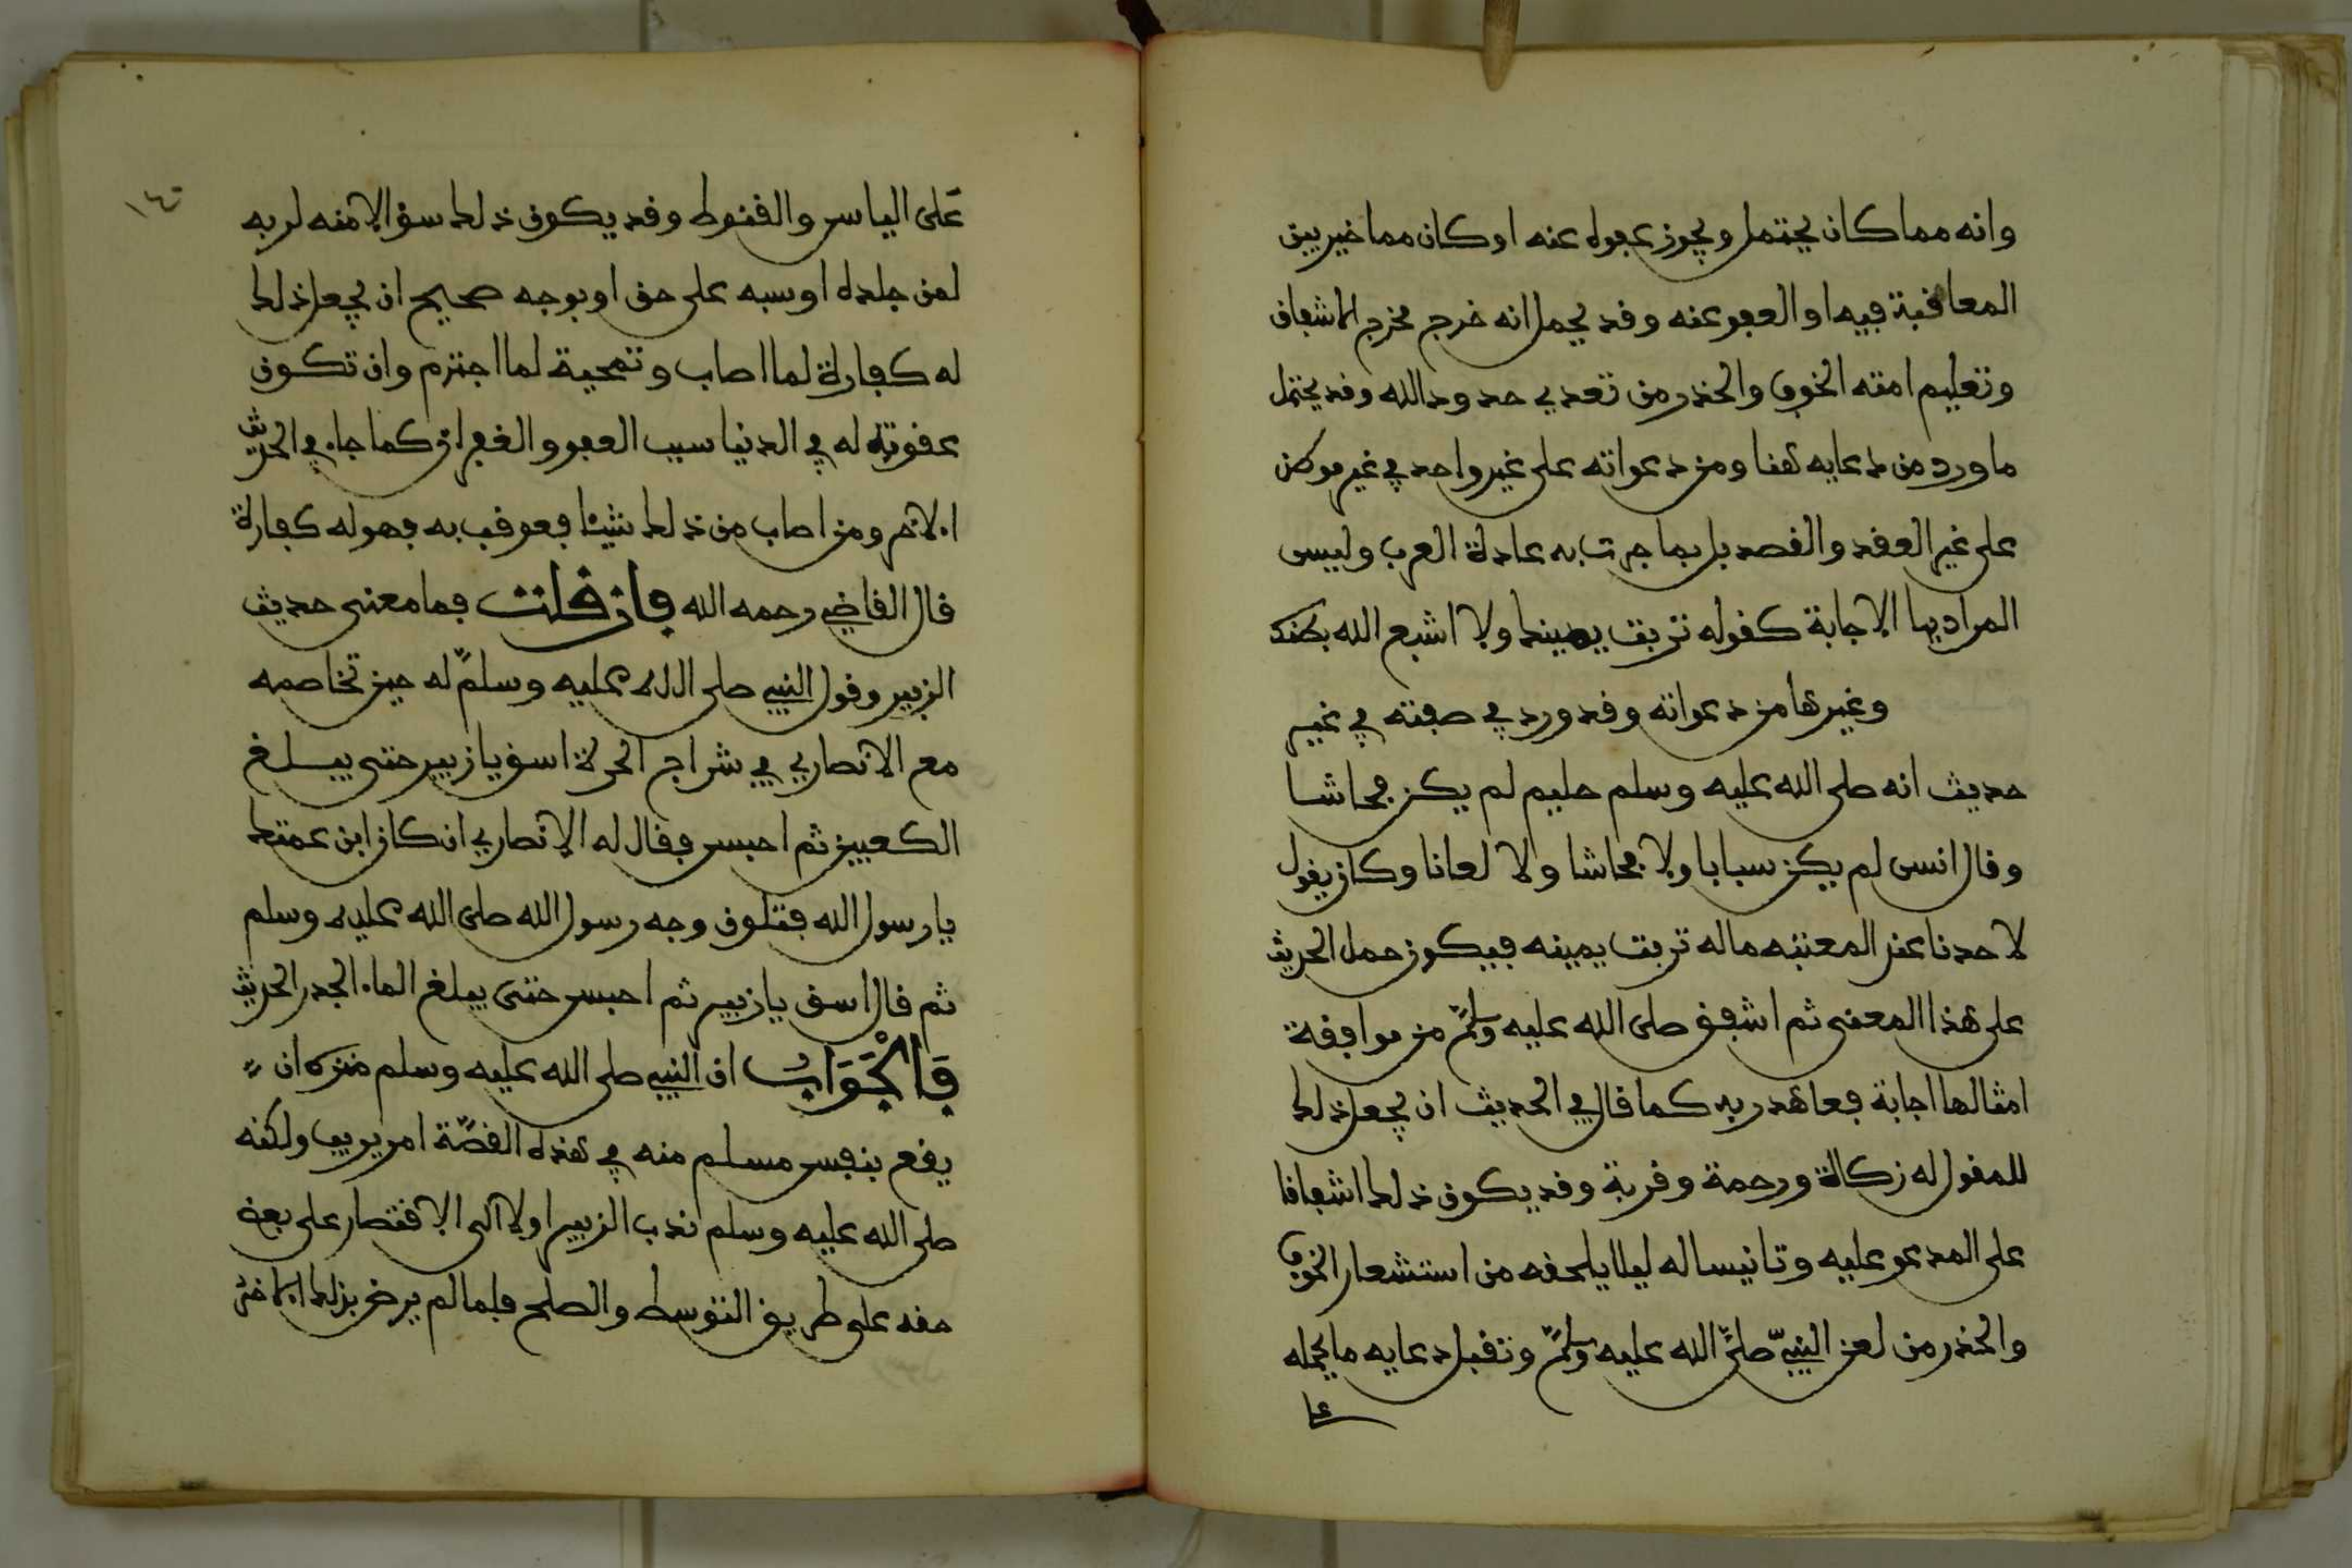 وانه مما كان يحتمل ويجوز عفوه عنه او كان مما خير بين
المعاقبة فيه او العفو عنه وقد يحمل انه خرج مخرج الاشفاق
وتعليم امته الخوف والحذر من تعدي حدود الله وقد يحتمل
ما ورد من دعايه هنا ومن دعواته على غير واحد في غير موطن
على غير العقد والقصد بل بما جرت به عادة العرب وليس
المراد بها الاجابة كقوله تربت يمينك ولا اشبع الله بطنك
وغيرها من دعواته وقد ورد في صفته في غير
حديث انه صلى الله عليه وسلم حليم لم يكن فحاشا
وقال انس لم يكن سبابا ولا فحاشا ولا لعانا وكان يقول
لاحدنا عند المعتبه ماله تربت يمينه فيكون حمل الحديث
على هذا المعنى ثم اشفق صلى الله عليه وسلم من موافقة
امثالها اجابة فعاهد ربه كما قال في الحديث ان يجعل ذلك
للمقول له زكاة ورحمة وقربة وقد يكون ذلك اشفاقا
على المدعو عليه وتانيسا له ليلا يلحقه من استشعار الخوف
والحذر من لعن النبي صلى الله عليه وسلم وتقبل دعايه ما يحمله
١٤٦
على الياس والقنوط وقد يكون ذلك سؤالا منه لربه
لمن جلده او سبه على حق او بوجه صحيح ان يجعل ذلك
له كفارة لما اصاب وتمحية لما اجترم وان تكون
عقوبته له في الدنيا سبب العفو والغفران كما جاء في الحديث
الاخر ومن اصاب من ذلك شيئا فعوقب به فهو له كفارة
قال القاضي رحمه الله فان قلت فما معنى حديث
الزبير وقول النبي صلى الله عليه وسلم له حين تخاصمه
مع الانصاري في شراج الحرة اسق يا زبير حتى يبلغ
الكعبين ثم احبس فقال له الانصاري ان كان ابن عمتك
يا رسول الله فتلون وجه رسول الله صلى الله عليه وسلم
ثم قال اسق يا زبير ثم احبس حتى يبلغ الماء الجدر الحديث
فَالْجَوَابُ ان النبي صلى الله عليه وسلم منزه ان
يقع بنفس مسلم منه في هذه القصة امر يريب ولكنه
صلى الله عليه وسلم ندب الزبير اولا الى الاقتصار على بعض
حقه على طريق التوسط والصلح فلما لم يرض بذلك الاخر